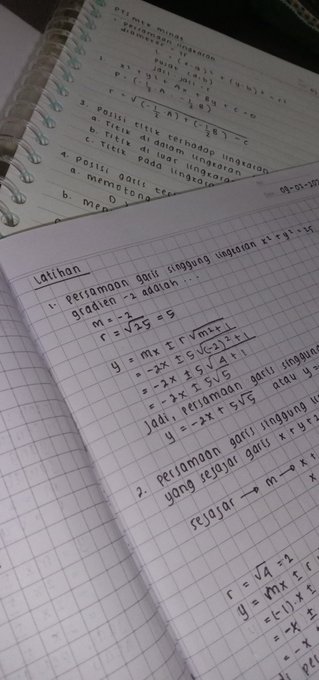 PTS MTK Minat
1. Persamaan lingkaran
(x-a)² + (y-b)² = r²
Pusat (a,b)
Jari-jari = r
2. x² + y² + Ax + By + C = 0
P = (-½A, -½B)
r = √(-½A)² + (-½B)² - C
3. Posisi titik terhadap lingkaran
a. Titik di dalam lingkaran
b. Titik di luar lingkaran
c. Titik pada lingkaran
4. Posisi garis
a. memotong
b.
09-03-20
Latihan
1. Persamaan garis singgung lingkaran x² + y² = 25
gradien -2 adalah ...
m = -2
r = √25 = 5
y = mx ± r√m²+1
= -2x ± 5√(-2)²+1
= -2x ± 5√4+1
= -2x ± 5√5
Jadi, persamaan garis singgung
y = -2x + 5√5 atau y =
2. Persamaan garis singgung
yang sejajar garis x + y +
sejajar → m → x +
x
r = √4 = 2
y = mx ± r
= (-1)x ±
= -x ±
= -x